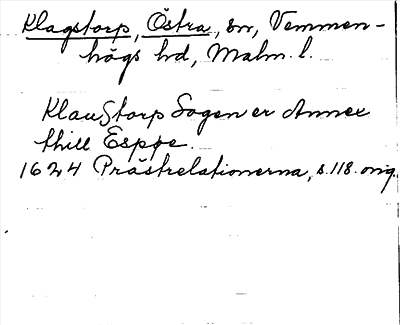 Klagstorp, Östra, sn, Vemmen-
högs hd, Malm. l.
Klaugstorp Sogen er Annex
thill Espøe.
1624 Prästrelationerna, s. 118. orig.